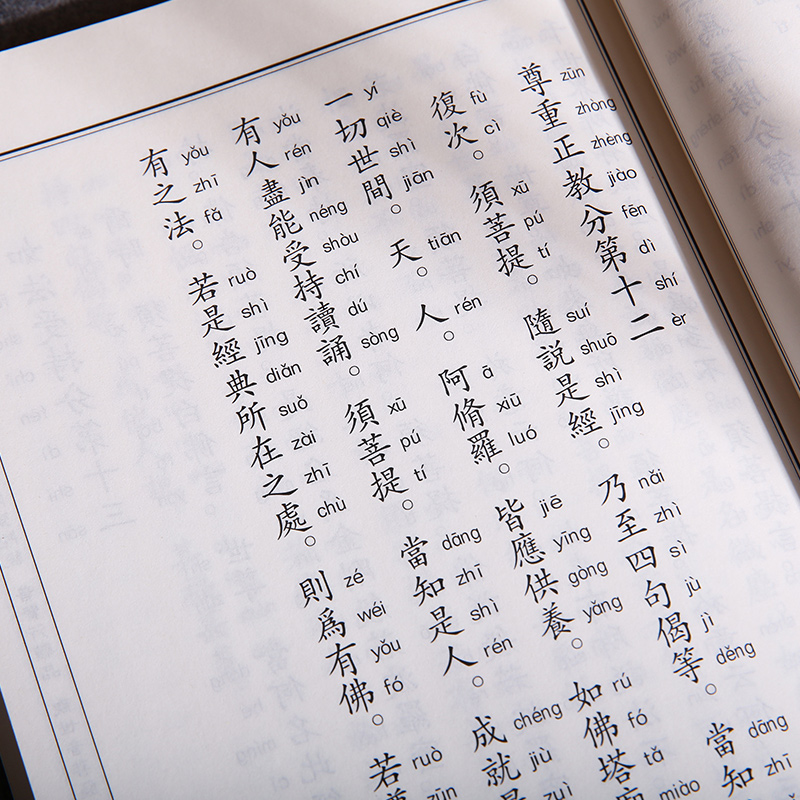 尊重正教分第十二
zūn zhòng zhèng jiào fēn dì shí èr
復次。須菩提。隨說是經。乃至四句偈等。當知
fù cì xū pú tí suí shuō shì jīng nǎi zhì sì jù jì děng dāng zhī
一切世間。天。人。阿脩羅。皆應供養。如佛塔廟
yí qiè shì jiān tiān rén ā xiū luó jiē yīng gòng yǎng rú fó tǎ miào
有人盡能受持讀誦。須菩提。當知是人。成就是
yǒu rén jìn néng shòu chí dú sòng xū pú tí dāng zhī shì rén chéng jiù zuì
有之法。若是經典所在之處。則爲有佛。若尊
yǒu zhī fǎ ruò shì jīng diǎn suǒ zài zhī chù zé wéi yǒu fó ruò zūn